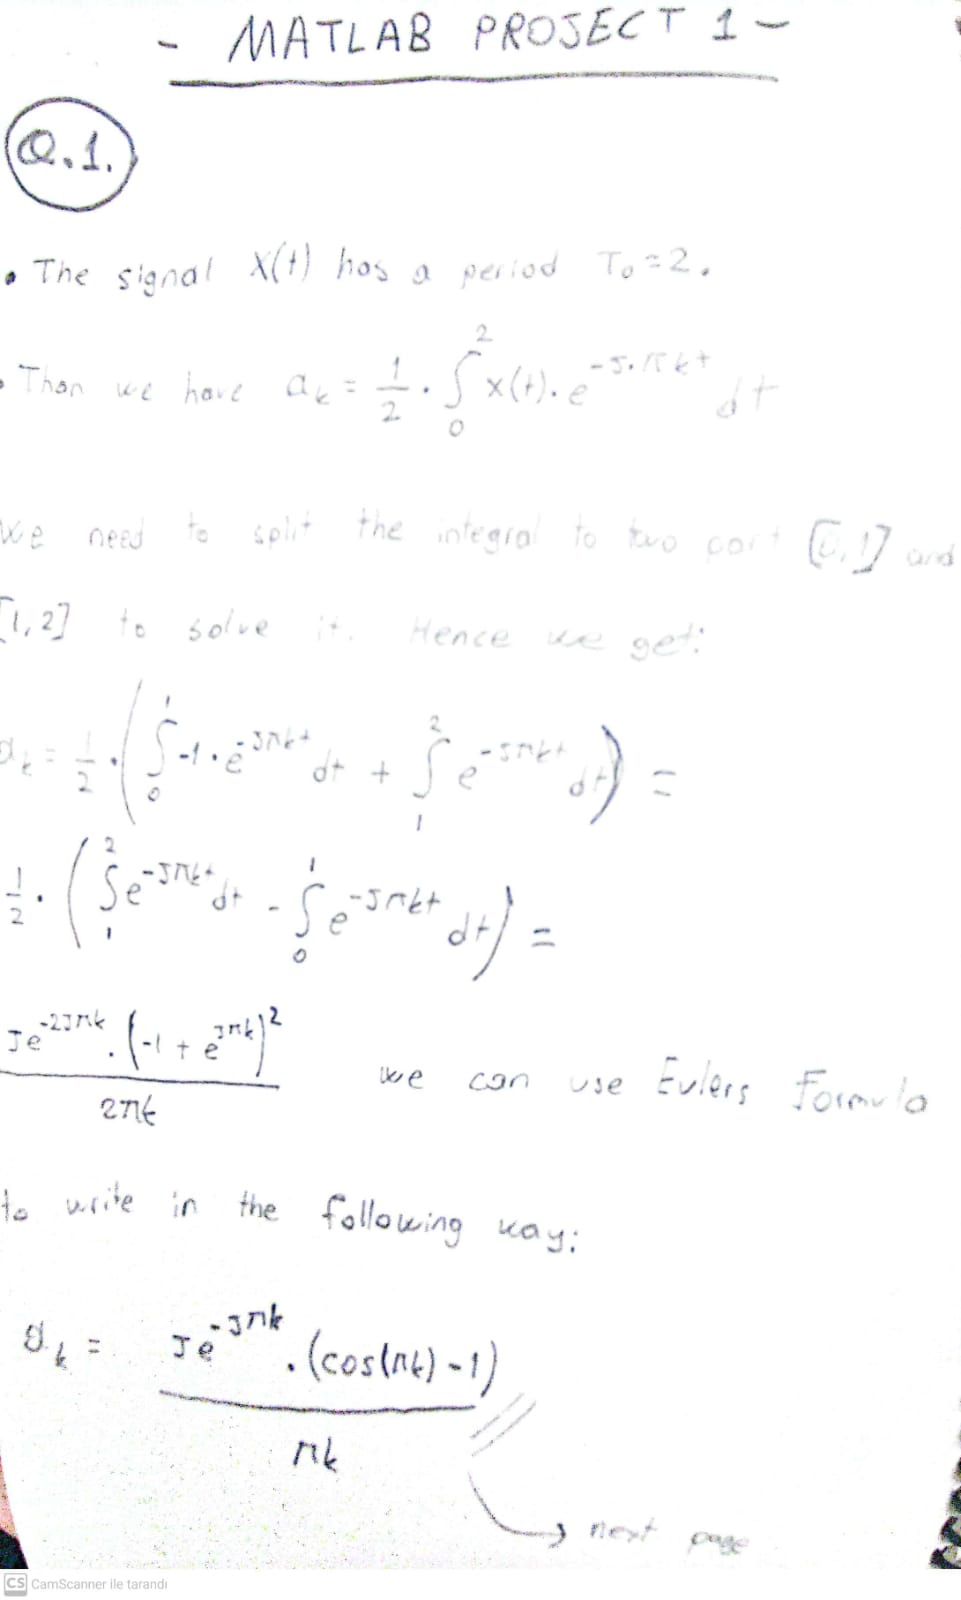 - MATLAB PROJECT 1 -
Q.1.
• The signal x(t) has a period T₀=2.
• Then we have aₖ = 1/2 . ∫₀² x(t). e^(-J.πkt) dt
We need to split the integral to two part [0,1] and
[1,2] to solve it. Hence we get:
aₖ = 1/2 . (∫₀¹ -1 . e^(-Jπkt) dt + ∫₁² e^(-Jπkt) dt) =
1/2 . (∫₁² e^(-Jπkt) dt - ∫₀¹ e^(-Jπkt) dt) =
Je^(-2Jπk) . (-1 + e^(Jπk))² / 2πk we can use Eulers Formula
to write in the following way:
aₖ = Je^(-Jπk) . (cos(πk) - 1) / πk
→ next page
CS CamScanner ile tarandı